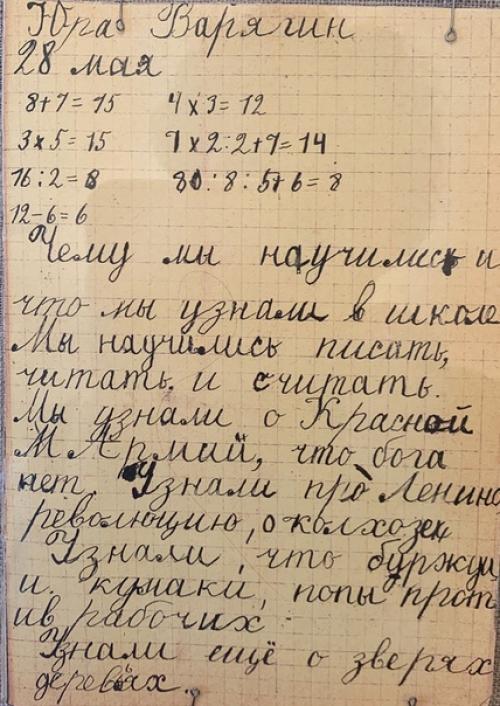 Юра Варягин
28 мая
8+7=15 4x3=12
3x5=15 7x2:2+7=14
16:2=8 80:8:5+6=8
12-6=6
Чему мы научились и
что мы узнали в школе
Мы научились писать,
читать. и считать.
Мы узнали о Красной
М Армий, что бога
нет. Узнали про Ленина
революцию, о колхозех
Узнали, что буржуи
и. кулаки, попы прот
ив рабочих
Узнали ещё о зверях
деревьях.